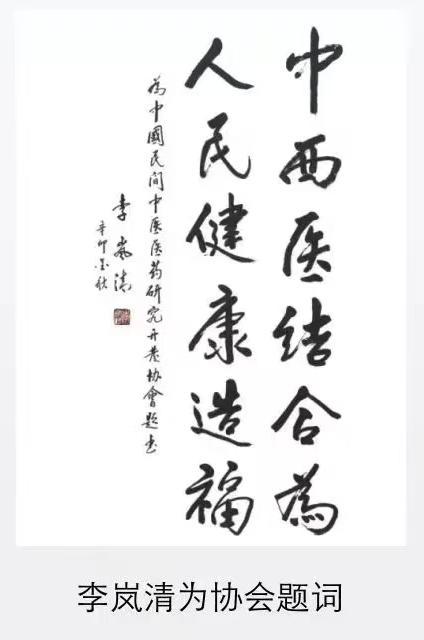 中西医结合為
人民健康造福
為中國民间中医医药研究开发协會题书
李岚清
辛卯金秋
李岚清为协会题词